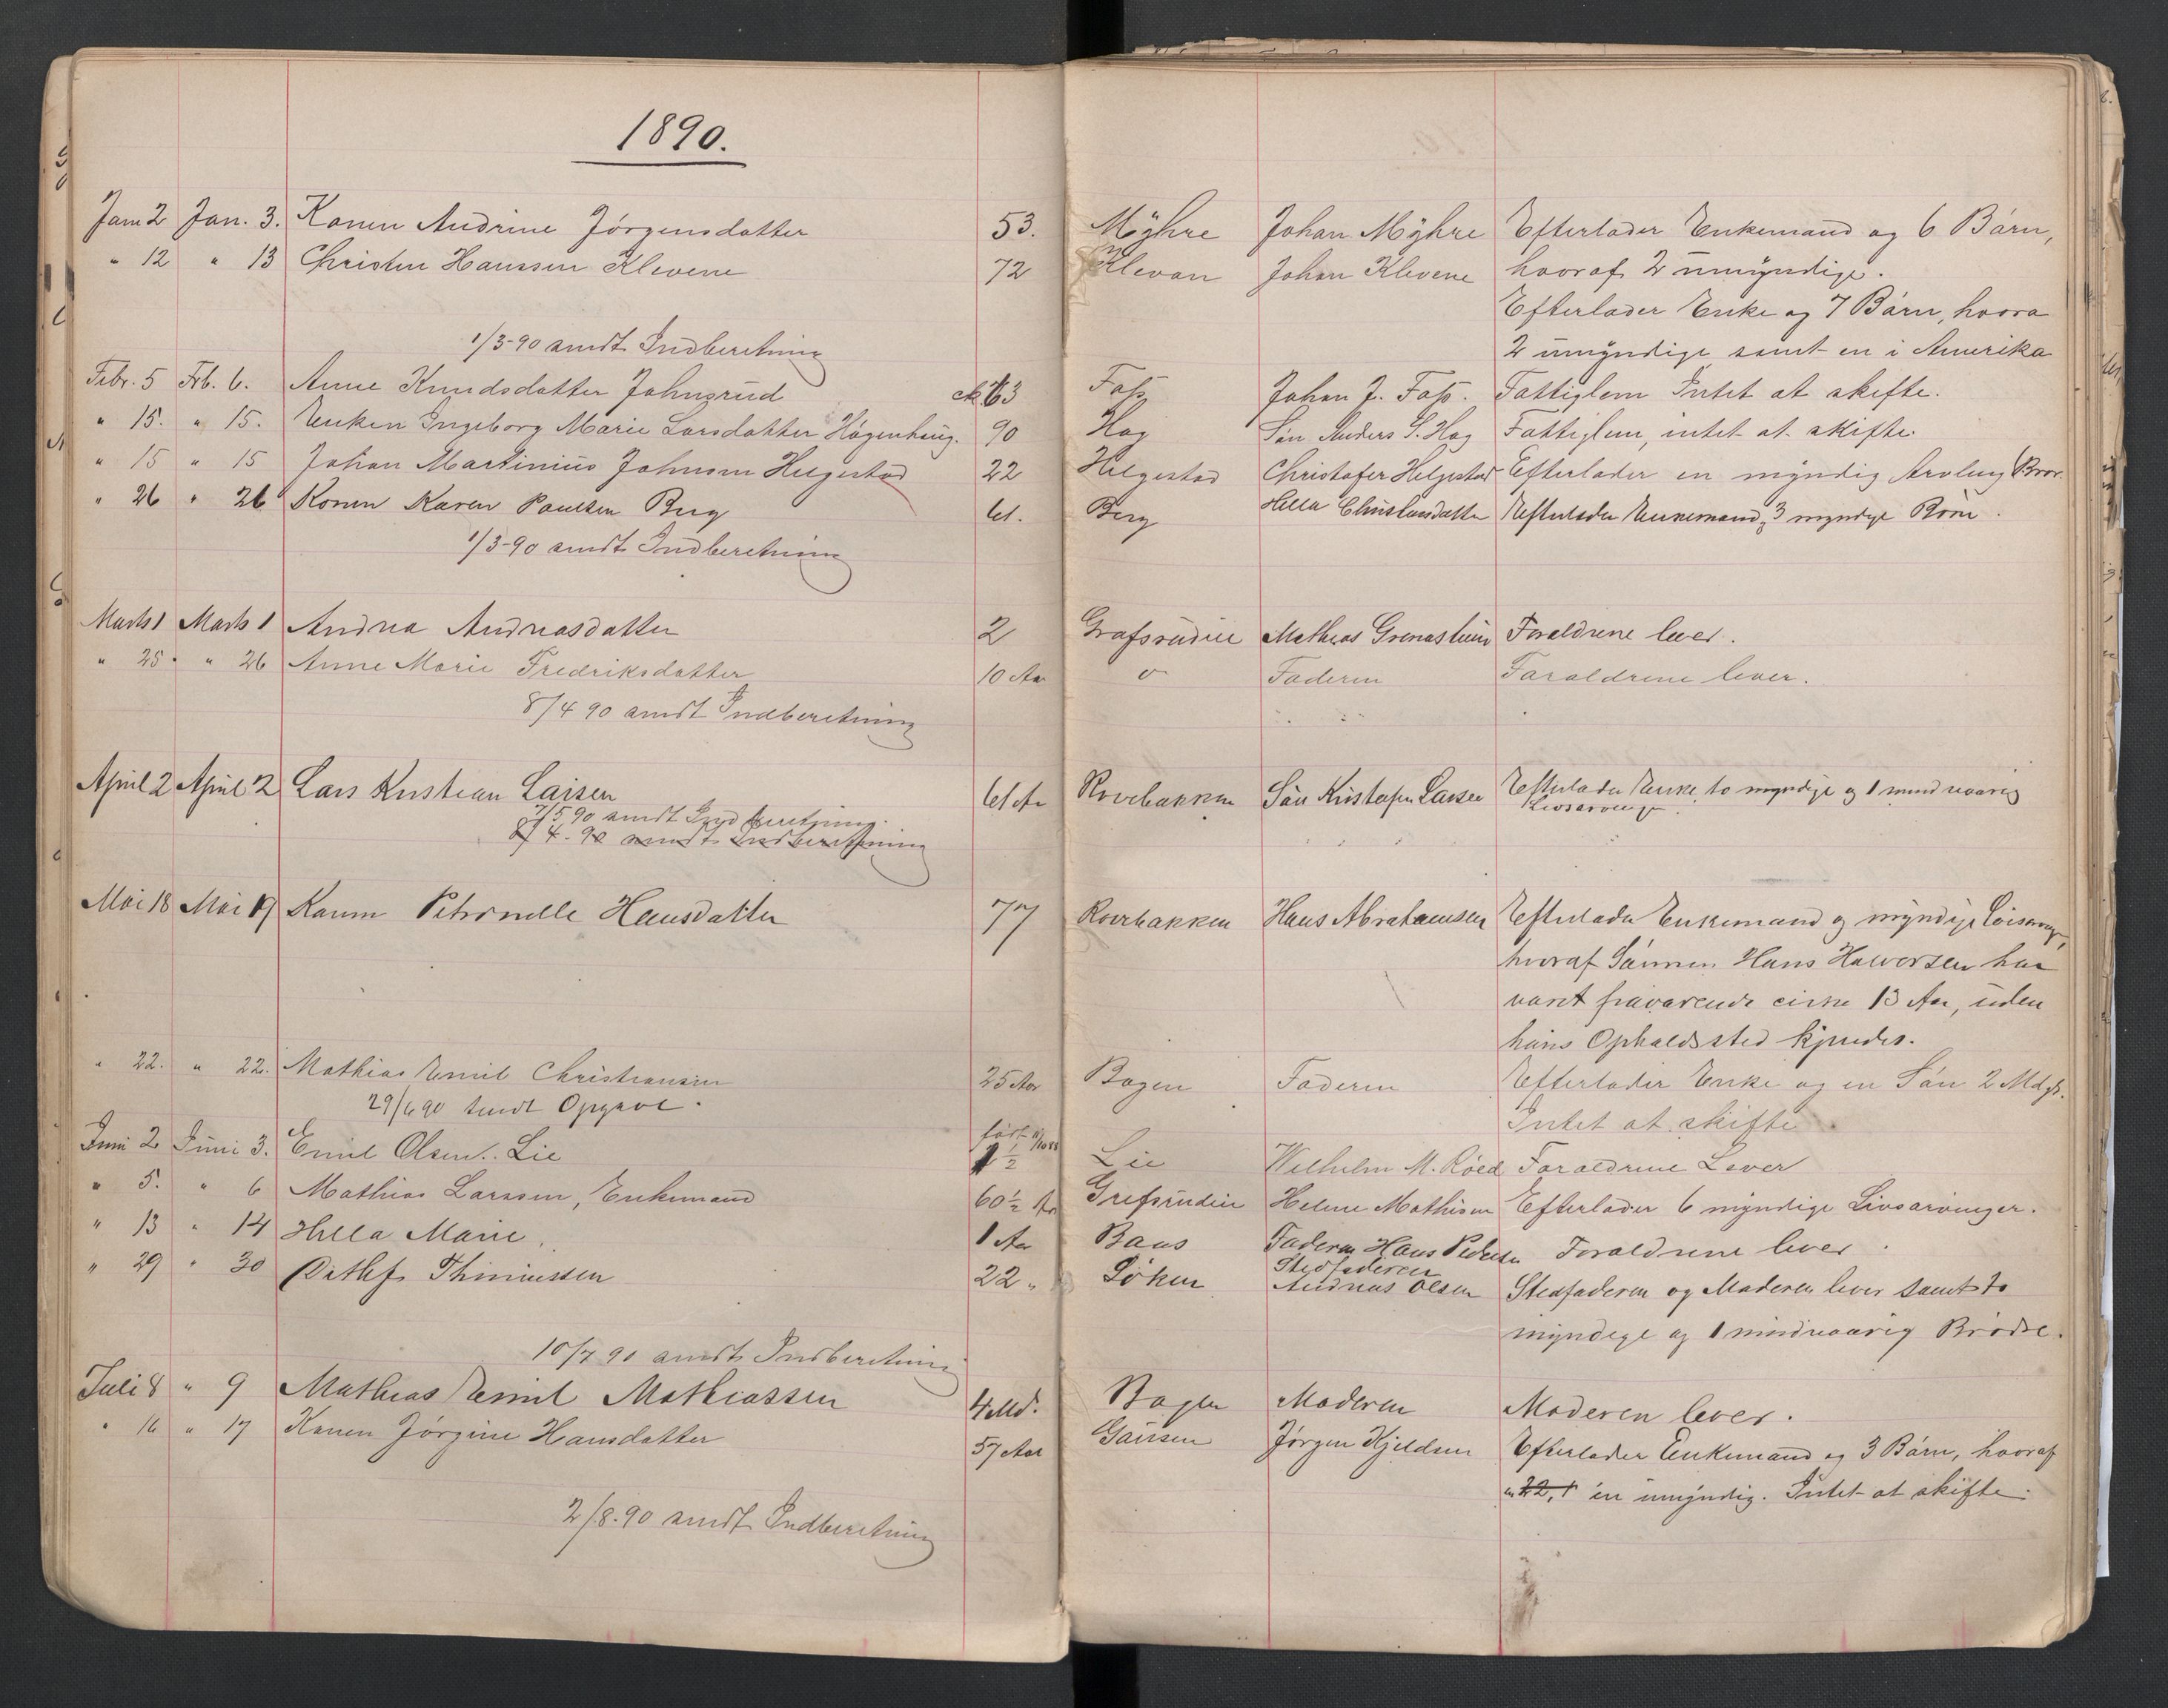 1890.
Janu 2 Jan. 3. Konen Andrine Jørgensdatter 53. Mÿhre Johan Mÿhre Efterlader Enkemand og 6 Börn,
" 12 " 13 Christen Hanssen Klevene 72 Klevan Johan Klevene hvoraf 2 umÿndige.
Efterlader Enke og 7 Börn, hvora
2 umÿndige samt en i Amerika
1/3-90 sendt Indberetning
Febr. 5 Feb. 6. Anne Knudsdatter Johnsrud 63 Foss Johan J. Foss. Fattiglem Intet at skifte.
" 15. " 15. Enken Ingeborg Marie Larsdatter Høgenhaug. 90 Hog Sön Anders S. Hog Fattiglem, intet at skifte.
" 15 " 15 Johan Martinius Johnsen Helgestad 22 Helgestad Christofer Helgestad Efterlader en mÿndig Arving Bror.
" 26 " 26 Konen Karen Paulsen Berg 61. Berg Hella Christiansdatter Efterlader Enkemand, 3 myndige Börn.
1/3-90 sendt Indberetning
Marts 1 Marts 1 Andrea Andreasdatter 2 Grafsrudeie Mathias Grenasteие Foreldrene lever.
" 25. " 26 Anne Marie Fredriksdatter 10 Aar Faderen Foraldrene lever.
8/4 90 sendt Indberetning
April 2 April 2 Lars Kristian Larsen 61 Ar Rovebakken Sön Kristofer Larsen Efterlader Enke, to myndige og 1 mindreaarig
Livsarvinge.
7/5 90 sendt Indberetning.
8/4-90 sendt Indberetning
Mai 18 Mai 19 Karen Petronelle Hansdatter 77 Roverbakken Hans Abrahamsen Efterlader Enkemand og mÿndige Livsarvinger,
hvoraf Sönnen Hans Halvorsen har
varet fraværende cirka 13 Aar, uden
hans Opholdssted kjendes.
" 22. " 22. Mathias Emil Christiansen 25 Aar Bogen Faderen Efterlader Enke og en Sön 2 Mdgl.
29/6 90 sendt Opgave. Intet at skifte
Juni 2 Juni 3. Emil Olsen Lie 1 1/2 Lie Wilhelm M. Röed Foraldrene Lever
" 5. " 6 Mathias Larssen, Enkemand 60 1/2 Ar Grefsrudeie Helene Mathisen Efterlader 6 mÿndige Livsarvinger.
" 13 " 14 Hella Marie. 1 Aar Baas Faderen Hans Pedersen Foraldrene lever.
" 29 " 30 Ditlef Thiniussen 22 " Söken Stedfaderen Andreas Olsen Stedfaderen og Moderen lever samt to
mÿndige og 1 mindreaarig Brödre.
10/7 90 sendt Indberetning
Juli 8 " 9 Mathias Emil Mathiassen 4 Md. Bogen Moderen Moderen lever.
" 16 " 17 Konen Jörgine Hansdatter 57 Aar Jörgen Kjeldsen Efterlader Enkemand og 3 Börn, hvoraf
en umÿndig. Intet at skifte.
2/8-90 sendt Indberetning